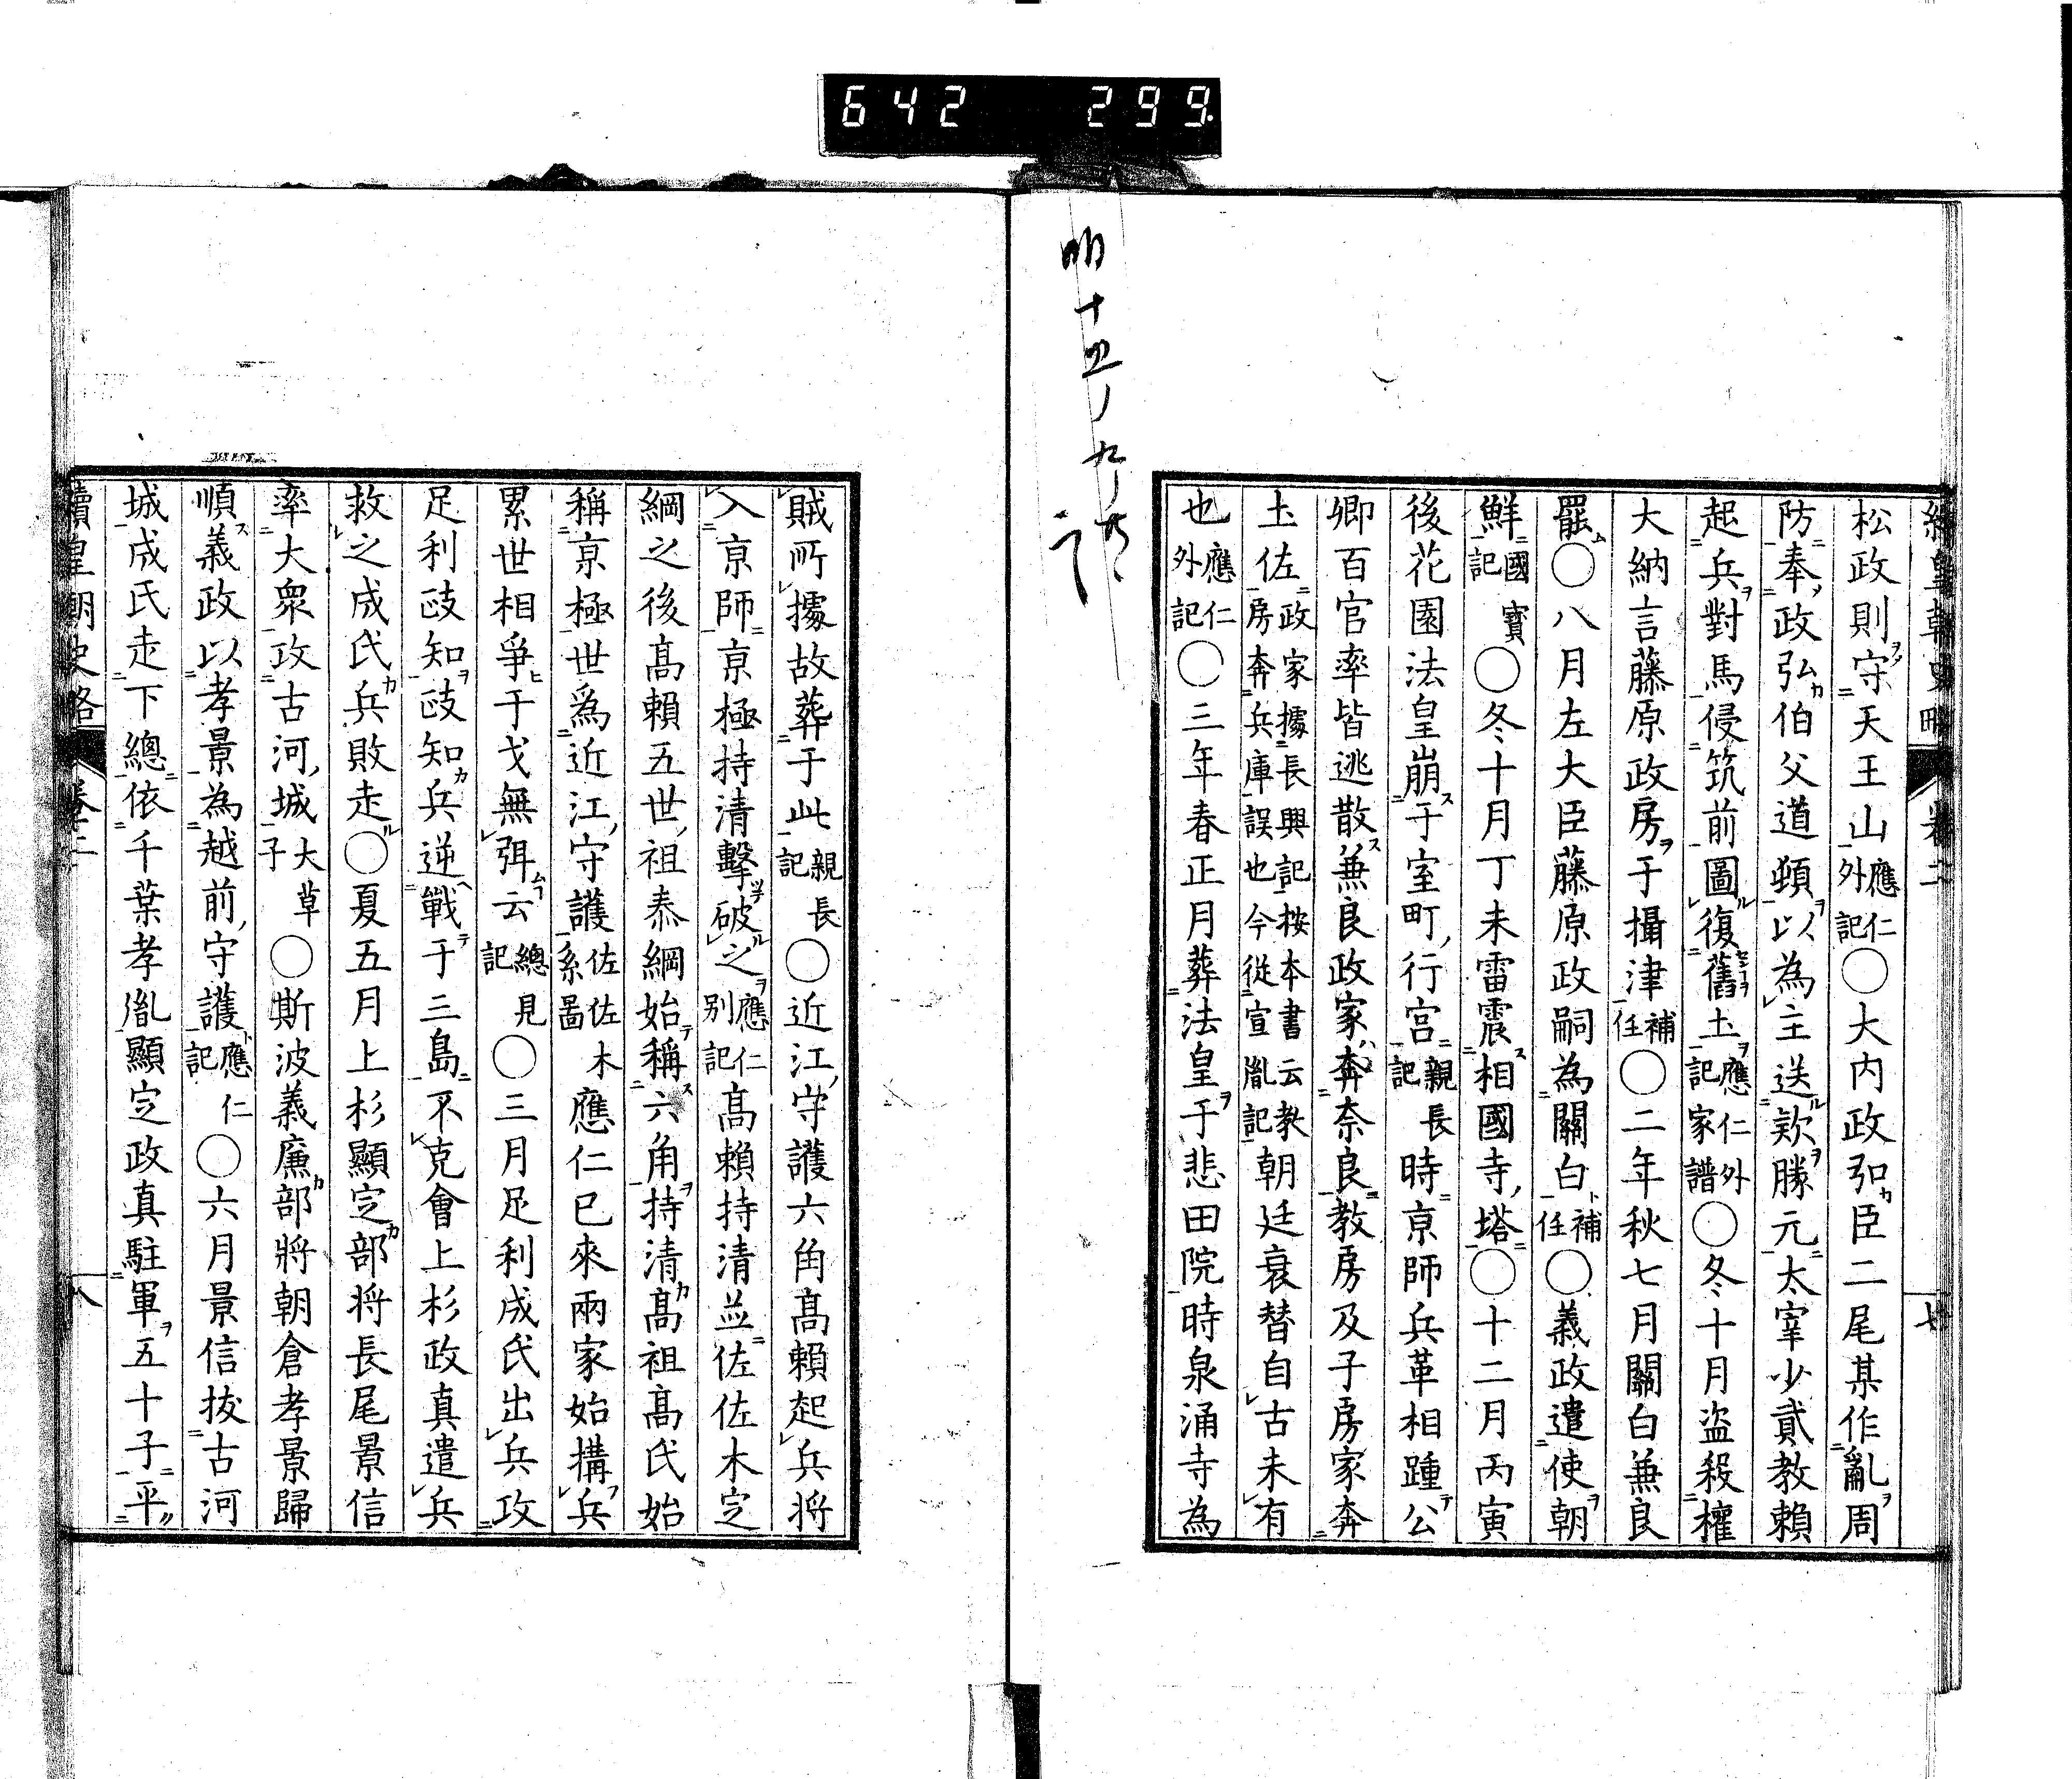 642 299.
續皇朝史略 卷二 七
松政則守天王山應仁外記〇大内政弘臣二尾某作亂周
防奉政弘伯父道頓以為主送欵勝元太宰少貳教賴
起兵對馬侵筑前圖復舊土應仁外記家譜〇冬十月盗殺權
大納言藤原政房于攝津補任〇二年秋七月關白兼良
罷〇八月左大臣藤原政嗣為關白補任〇義政遣使朝
鮮國寳記〇冬十月丁未雷震相國寺塔〇十二月丙寅
後花園法皇崩于室町行宮親長記時京師兵革相踵公
卿百官率皆逃散兼良政家奔奈良教房及子房家奔
土佐政家據長興記按本書云教房奔兵庫誤也今從宣胤記朝廷衰替自古未有
也應仁外記〇三年春正月葬法皇于悲田院時泉涌寺為
賊所據故葬于此親長記〇近江守護六角高賴起兵將
入京師京極持清擊破之應仁别記高賴持清並佐佐木定
綱之後高賴五世祖泰綱始稱六角持清高祖高氏始
稱京極世為近江守護佐佐木系圖應仁已來兩家始搆兵
累世相爭干戈無弭云總見記〇三月足利成氏出兵攻
足利政知政知兵逆戰于三島不克會上杉政真遣兵
救之成氏兵敗走〇夏五月上杉顯定部将長尾景信
率大衆攻古河城大草子〇斯波義廉部將朝倉孝景歸
順義政以孝景為越前守護應仁記〇六月景信拔古河
城成氏走下總依千葉孝胤顯定政真駐軍五十子平
續皇朝史略 卷二 八